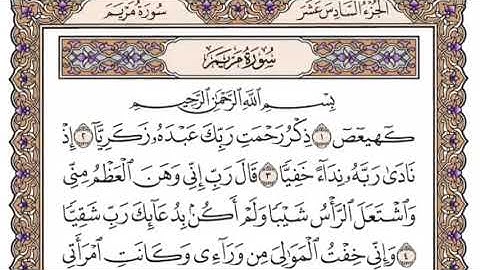 الجزء السادس عشر
سورة مريم
سورة مريم
بِسْمِ ٱللَّهِ ٱلرَّحْمَٰنِ ٱلرَّحِيمِ
كٓهيعٓصٓ ١ ذِكْرُ رَحْمَتِ رَبِّكَ عَبْدَهُۥ زَكَرِيَّآ ٢ إِذْ
نَادَىٰ رَبَّهُۥ نِدَآءً خَفِيًّا ٣ قَالَ رَبِّ إِنِّى وَهَنَ ٱلْعَظْمُ مِنِّى
وَٱشْتَعَلَ ٱلرَّأْسُ شَيْبًا وَلَمْ أَكُنۢ بِدُعَآئِكَ رَبِّ شَقِيًّا
٤ وَإِنِّى خِفْتُ ٱلْمَوَٰلِىَ مِن وَرَآءِى وَكَانَتِ ٱمْرَأَتِى